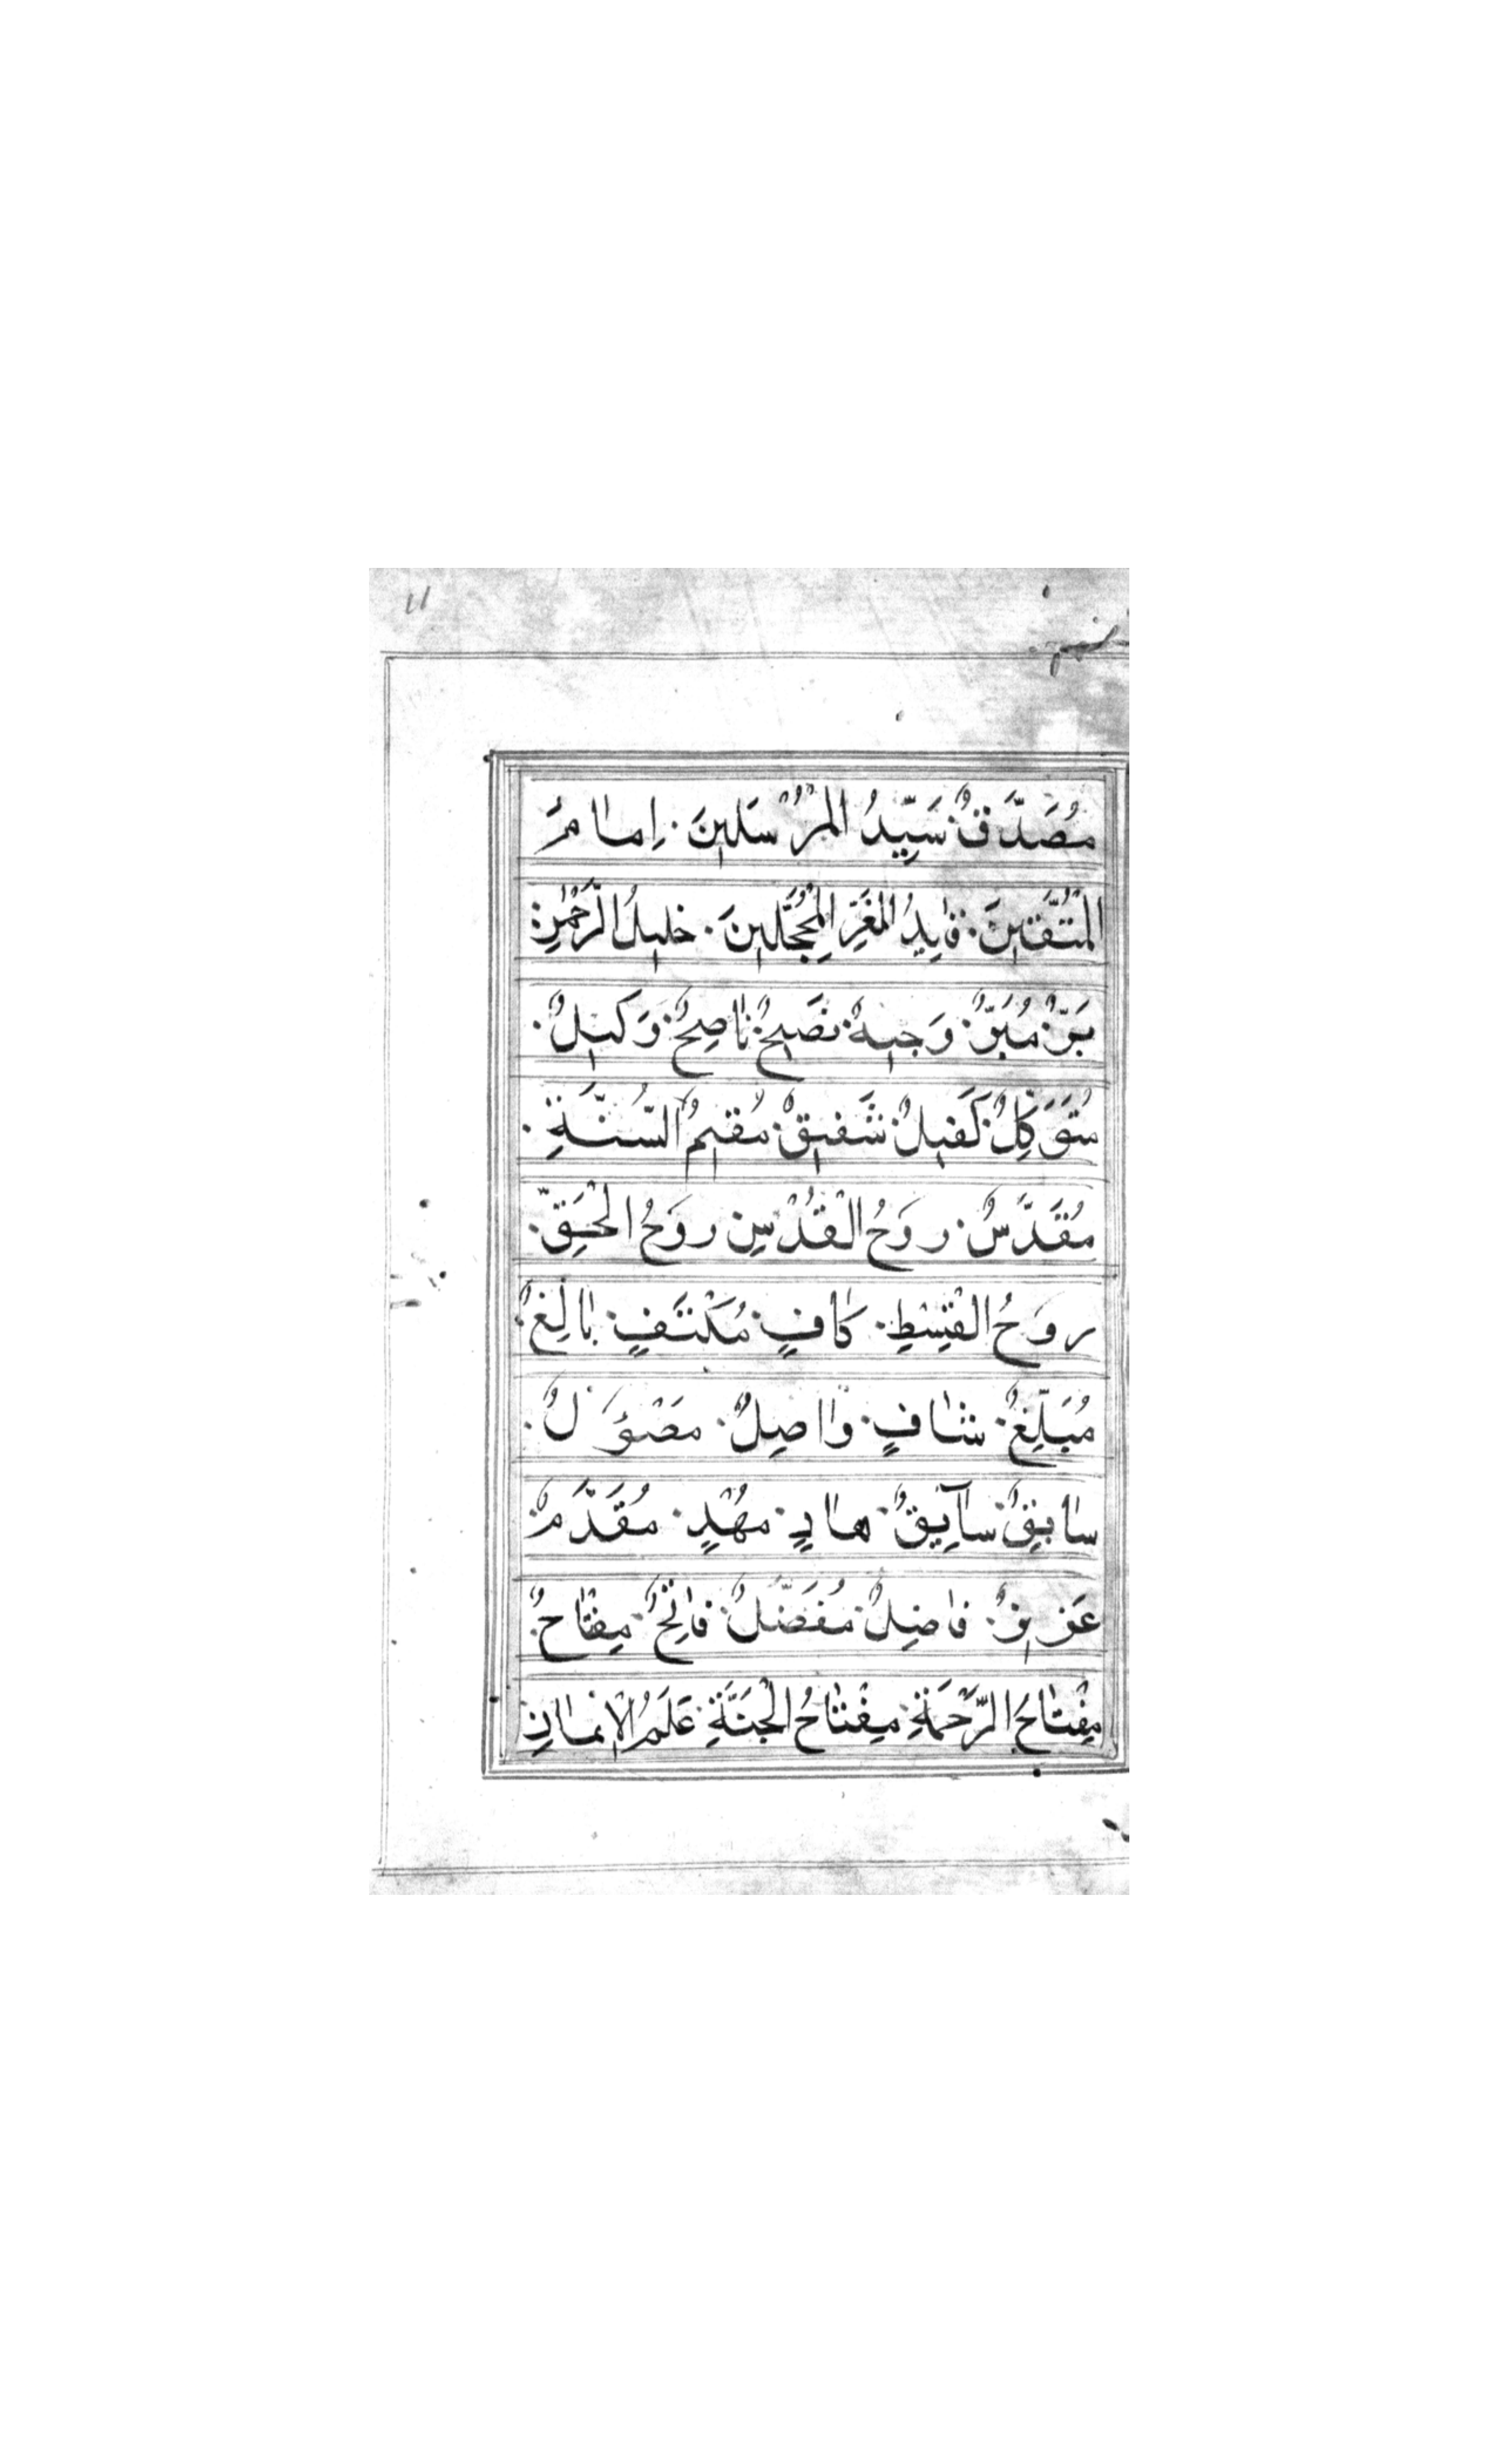 مُصَدَّقٌ سَيِّدُ الْمُرْسَلِينَ. اِمَامُ
الْمُتَّقِينَ. قَايِدُ الْغُرِّ الْمُحَجَّلِينَ. خَلِيلُ الرَّحْمٰنِ.
بَرٌّ. مُبَرٌّ. وَجِيهٌ. نَصِيحٌ. نَاصِحٌ. وَكِيلٌ.
مُتَوَكِّلٌ. كَفِيلٌ. شَفِيقٌ. مُقِيمُ السُّنَّةِ.
مُقَدَّسٌ. رُوحُ الْقُدُسِ. رُوحُ الْحَقِّ.
رُوحُ الْقِسْطِ. كَافٍ. مُكْتَفٍ. بَالِغٌ.
مُبَلِّغٌ. شَافٍ. وَاصِلٌ. مَوْصُولٌ.
سَابِقٌ. سَآيِقٌ. هَادٍ. مُهْدٍ. مُقَدَّمٌ
عَزِيزٌ. فَاضِلٌ. مُفَضَّلٌ. فَاتِحٌ. مِفْتَاحٌ.
مِفْتَاحُ الرَّحْمَةِ. مِفْتَاحُ الْجَنَّةِ. عَلَمُ الْاِيمَانِ